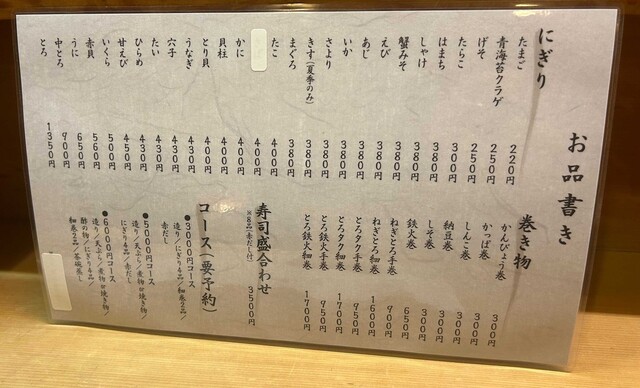 お品書き
にぎり
たまご 220円
青海苔クラゲ 250円
げそ 250円
たらこ 300円
はまち 380円
しゃけ 380円
蟹みそ 380円
えび 380円
あじ 380円
いか 380円
さより 380円
きす(夏季のみ) 380円
まぐろ 380円
たこ 400円
400円
かに 400円
貝柱 400円
とり貝 400円
うなぎ 430円
穴子 400円
たい 430円
ひらめ 430円
甘えび 450円
いくら 500円
赤貝 560円
うに 650円
中とろ 900円
とろ 1350円
巻き物
かんぴょう巻 300円
かっぱ巻 300円
しんこ巻 300円
納豆巻 300円
しそ巻 300円
鉄火巻 650円
ねぎとろ手巻 900円
ねぎとろ細巻 1600円
とろタク手巻 950円
とろタク細巻 1700円
とろ鉄火手巻 950円
とろ鉄火細巻 1700円
寿司盛合わせ 3500円
※8品(赤だし付)
コース(要予約)
●3000円コース
造り/にぎり4品/細巻2品/
赤だし
●5000円コース
造り/天ぷら/煮物or焼き物/
にぎり4品/赤だし
●6000円コース
造り/天ぷら/煮物or焼き物/
酢の物/にぎり4品/
細巻2品/茶碗蒸し